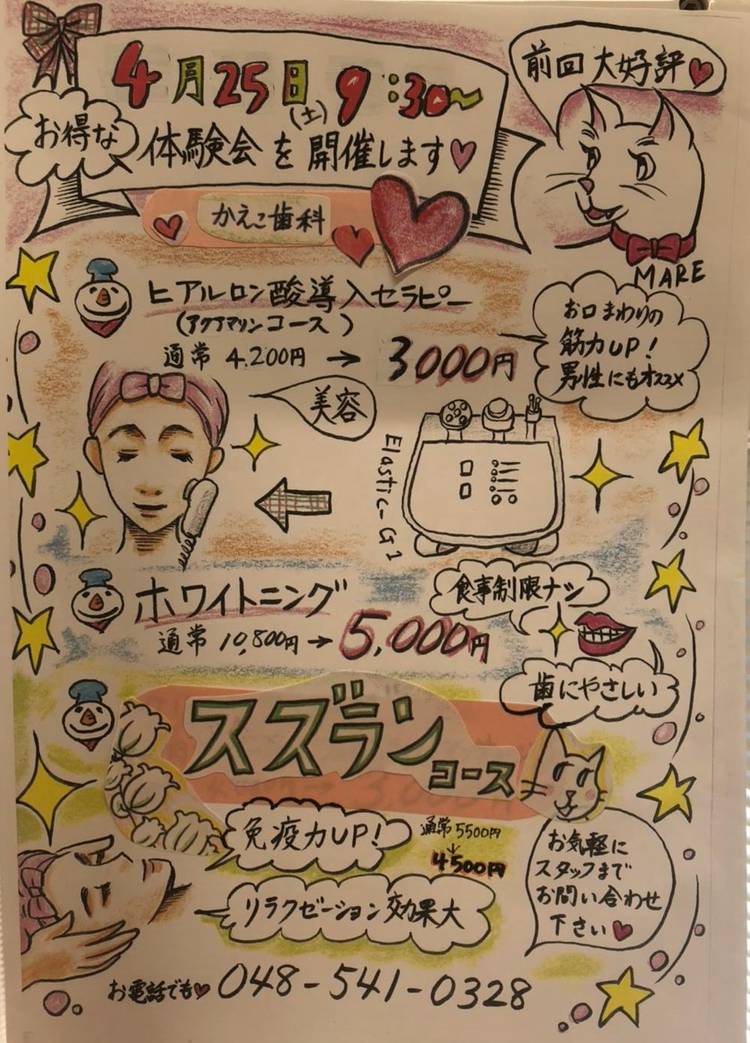 4月25日(土)9:30〜
お得な
体験会を開催します
前回大好評
かえこ歯科
MARE
ヒアルロン酸導入セラピー
(アクアマリンコース)
通常 4,200円 → 3000円
お口まわりの
筋力UP!
男性にもオススメ
美容
Elastic-G1
ホワイトニング
通常 10,800円 → 5,000円
食事制限ナシ
歯にやさしい
スズラン
コース
免疫力UP!
通常5500円
↓
4500円
リラクゼーション効果大
お気軽に
スタッフまで
お問い合わせ
下さい
お電話でも 048-541-0328